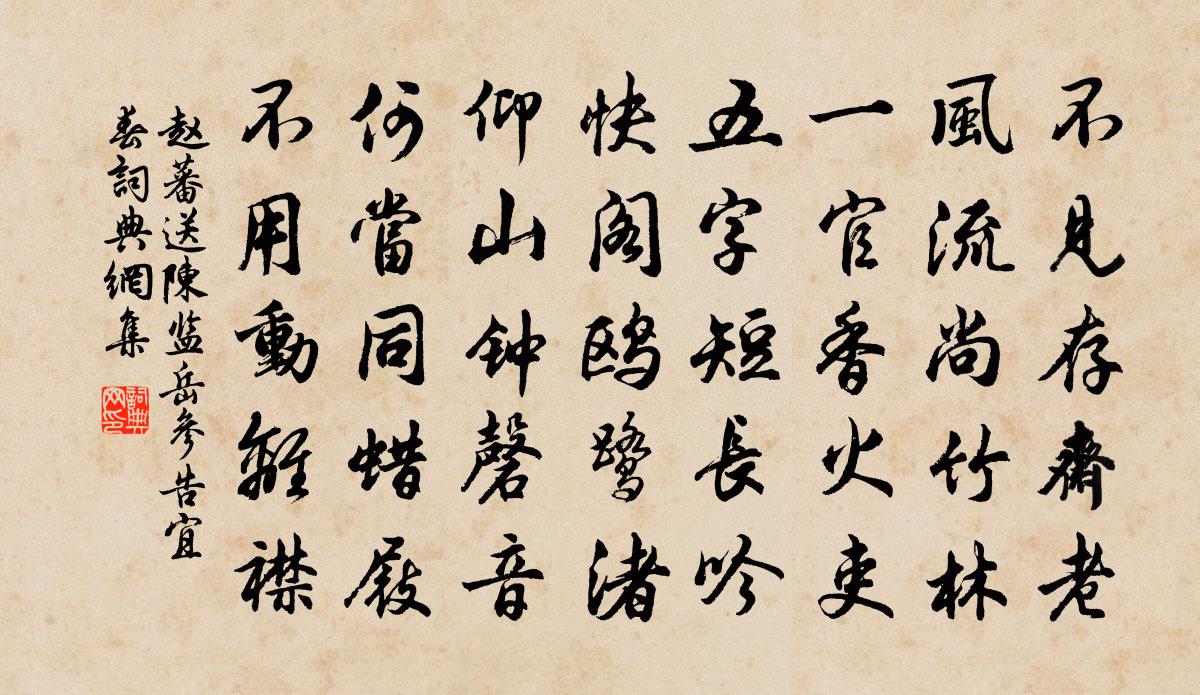 不見存齋老
風流尚竹林
一官香火吏
五字短長吟
快阁鸥鹭渚
仰山钟磬音
何當同蜡屐
不用動離襟
赵蕃送陳监岳參告宜
春詞典網集
詞典网印